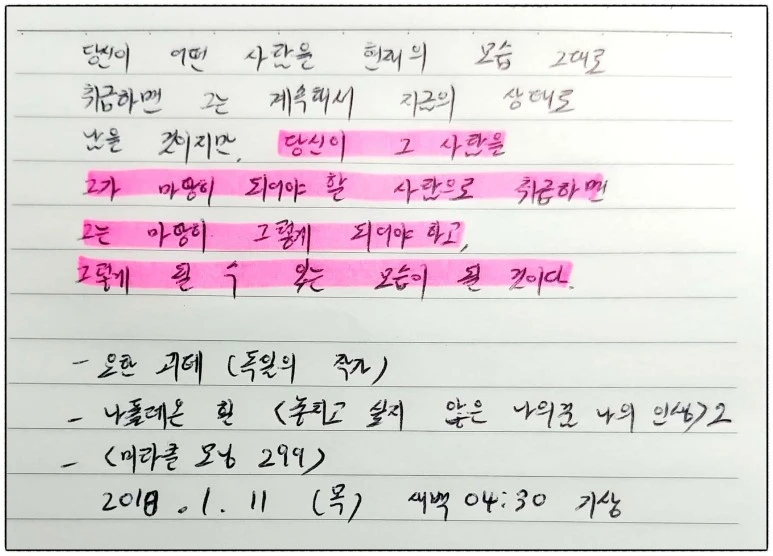 당신이 어떤 사람을 현재의 모습 그대로
취급하면 그는 계속해서 지금의 상태로
남을 것이지만, 당신이 그 사람을
그가 마땅히 되어야 할 사람으로 취급하면
그는 마땅히 그렇게 되어야 하고,
그렇게 될 수 있는 모습이 될 것이다.
- 요한 괴테 (독일의 작가)
- 나폴레온 힐 <놓치고 싶지 않은 나의 꿈 나의 인생>2
- <미라클 모닝 299>
2018. 1. 11 (목) 새벽 04:30 기상